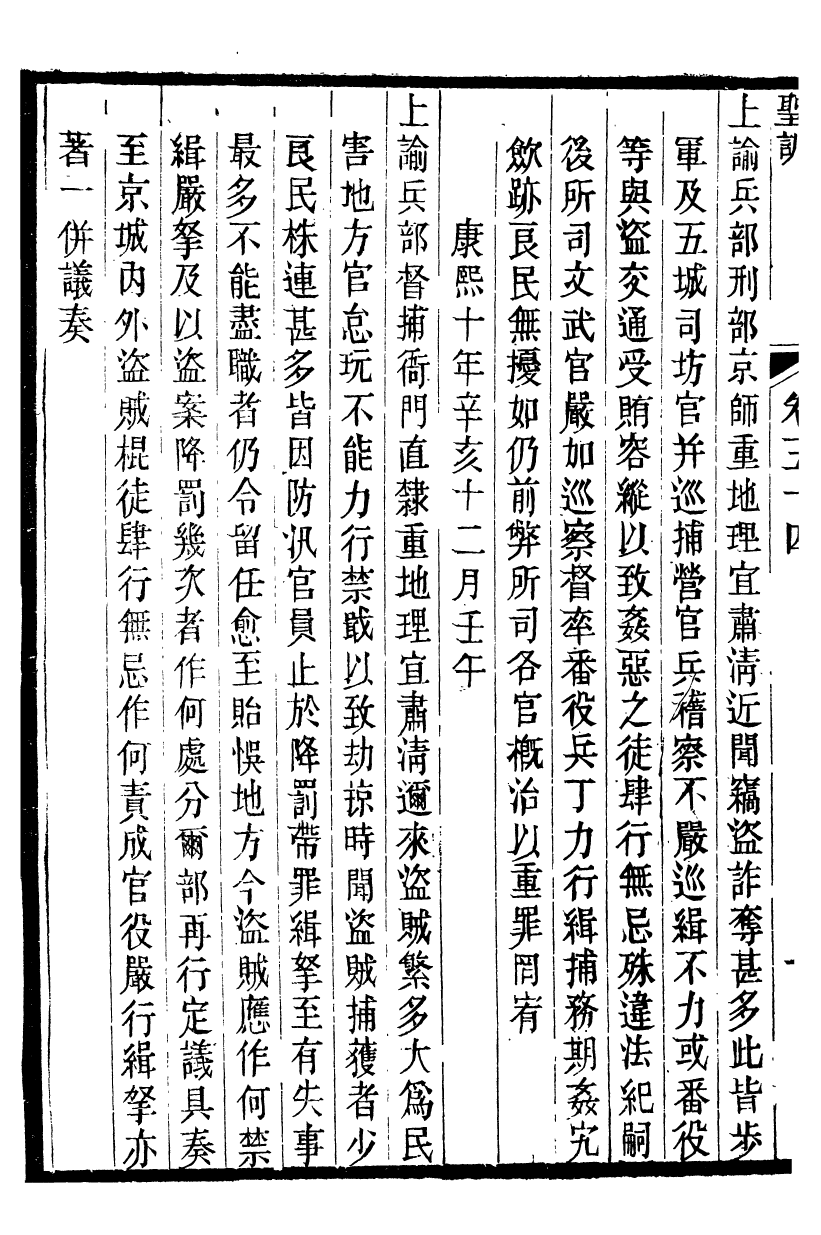 聖訓 卷三十四 一
上諭兵部刑部京師重地理宜肅淸近聞竊盜詐奪甚多此皆步
軍及五城司坊官并巡捕營官兵稽察不嚴巡緝不力或番役
等與盜交通受賄容縱以致姦惡之徒肆行無忌殊違法紀嗣
後所司文武官嚴加巡察督率番役兵丁力行緝捕務期姦宄
斂跡良民無擾如仍前弊所司各官槪治以重罪罔宥
康熙十年辛亥十二月壬午
上諭兵部督捕衙門直隸重地理宜肅淸邇來盜賊繁多大爲民
害地方官怠玩不能力行禁戢以致劫掠時聞盜賊捕獲者少
良民株連甚多皆因防汛官員止於降罰帶罪緝拏至有失事
最多不能盡職者仍令留任愈至貽悞地方今盜賊應作何禁
緝嚴拏及以盜案降罰幾次者作何處分爾部再行定議具奏
至京城內外盜賊棍徒肆行無忌作何責成官役嚴行緝拏亦
著一併議奏